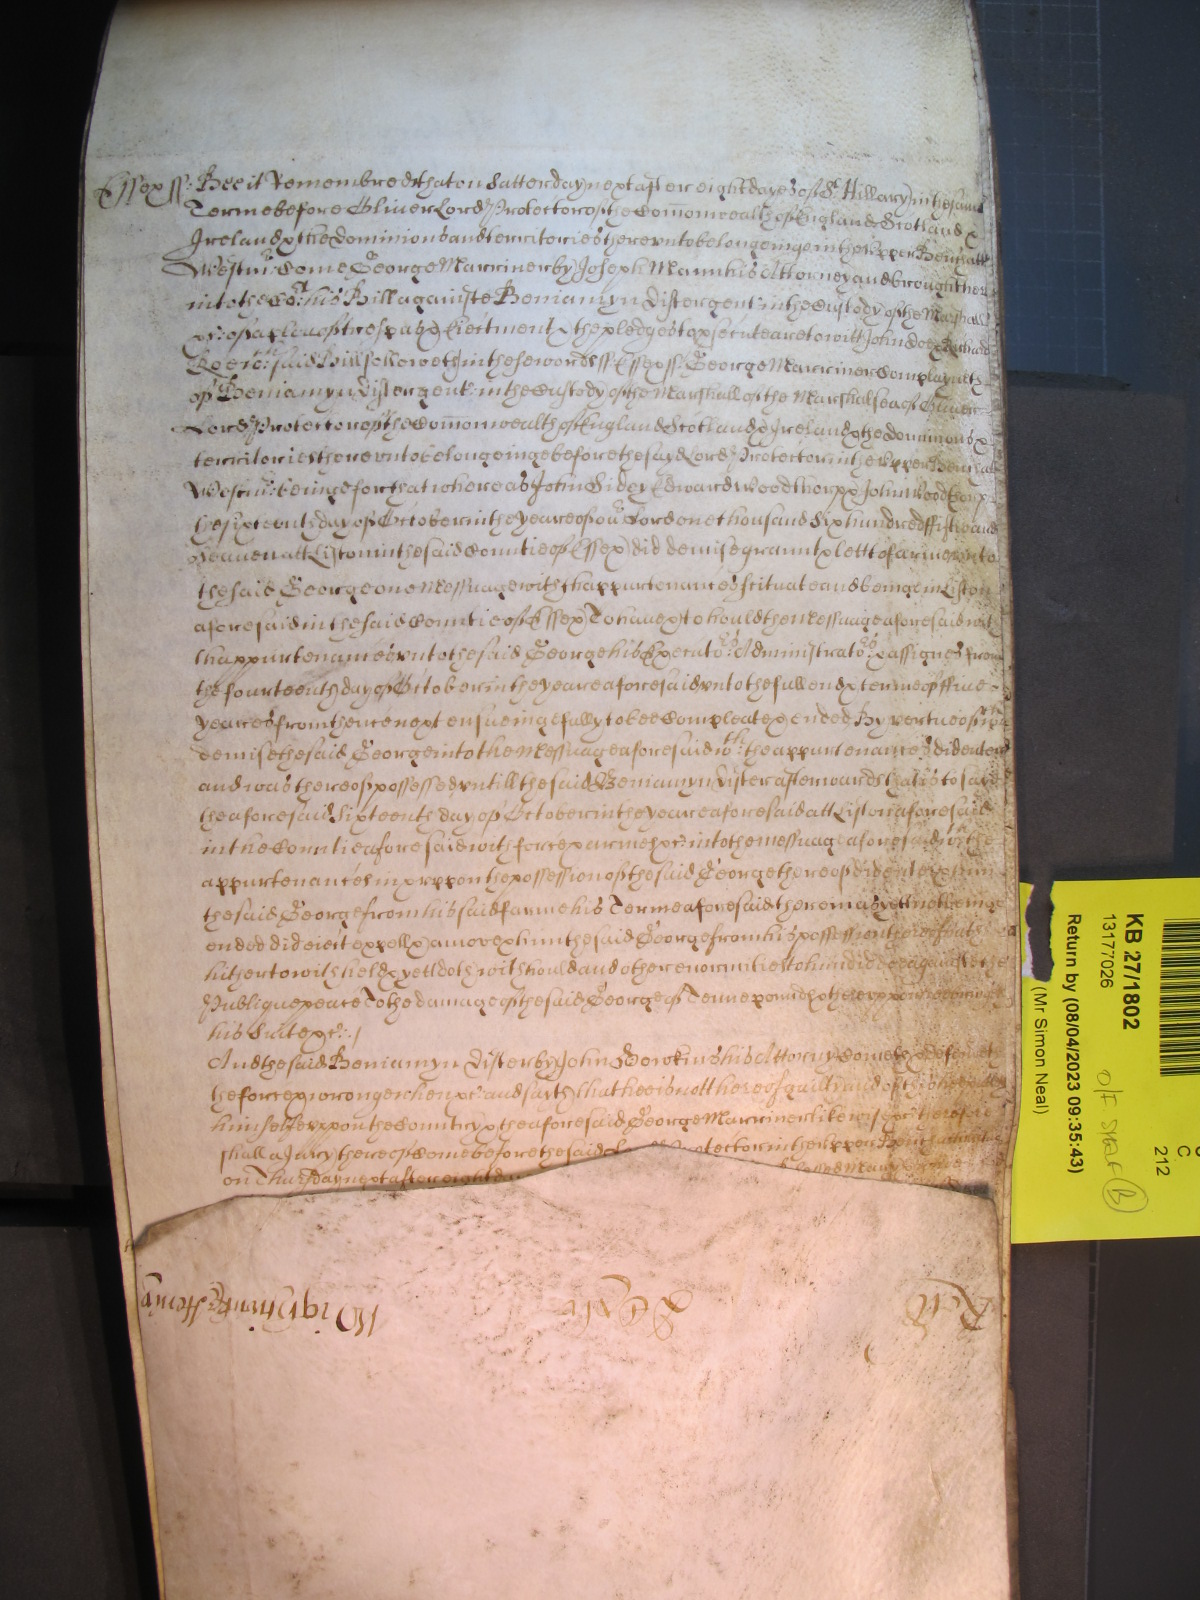 Essex ss: Bee it Remembred that on Satterday next after eight dayes of St Hillary in the same
Terme before Oliver Lord Protector of the Com̄onwealth of England Scotland &
Ireland & the Dominions and territories thereunto belongeinge in the Upper Bench att
Westmr: Come George Marriner by Joseph Mann his Attorney and brought here
into the Cort: his Bill againste Beniamyn Lister gent: in the Custody of the Marshall
&c: of a plea of trespas & Eiectment & the pledges to prosecute are to witt John Doe & Richard
Roe wch: said Bill followeth in these words ss Essex ss: George Marriner Complaynes
of Beniamyn Lister gent: in the Custody of the Marshall of the Marshalsea of Oliver
Lord Protector of the Com̄onwealth of England Scotland & Ireland & the Dominions &
territories thereunto belongeinge before the sayd Lord Protector in the Upper Bench att
Westmr: beinge for that whereas John Sidey Edward Woodthorpp & John Woodthorpp
the sixteenth day of October in the yeare of our Lord one thousand six hundred fiftie and
seaven att Liston in the said Countie of Essex did demise graunt & lett to farme unto
the said George one Messuage with thappurtenances scituate and beinge in Liston
aforesaid in the said Countie of Essex To have & to hould the Messuage aforesaid with
thappurtenances unto the said George his Executors: Administrators: & assignes from
the fourteenth day of October in the yeare aforesaid unto the full end & terme of five
yeares from thence next ensueinge fully to bee Compleate & ended By vertue of which
demise the said George into the Messuage aforesaid wth: the appurtenances did enter
and was thereof possessed untill the said Beniamyn Lister afterwards that is to say
the aforesaid sixteenth day of October in the yeare aforesaid att Liston aforesaid
in the Countie aforesaid with force & armes &c: into the messuage aforesaid with the
appurtenances in & uppon the possession of the said George thereof did enter & him
the said George from his said farme his Terme aforesaid therein as yett not beinge
ended did eiect expell & amove & him the said George from his possession thereof
hitherto withheld & yett doth withhould and other enormities to him did doe against the
Publique peace To the damage of the said George of Tenne pounds & thereuppon
his Suite &c: /
And the said Beniamyn Lister by John Hawkins his Attorny Cometh & defendeth
the force & wronge when &c: and sayth that hee is not thereof guilty and of this
himselfe uppon the Country & the aforesaid George Marriner likewise &c: therefore
shall a Jury thereof Come before the said Lord Protector in the Upper Bench
on Thursday next after eight
Wightman Attorny
KB 27/1802
13177026
Return by (08/04/2023 09:35:43)
(Mr Simon Neal)
C
212